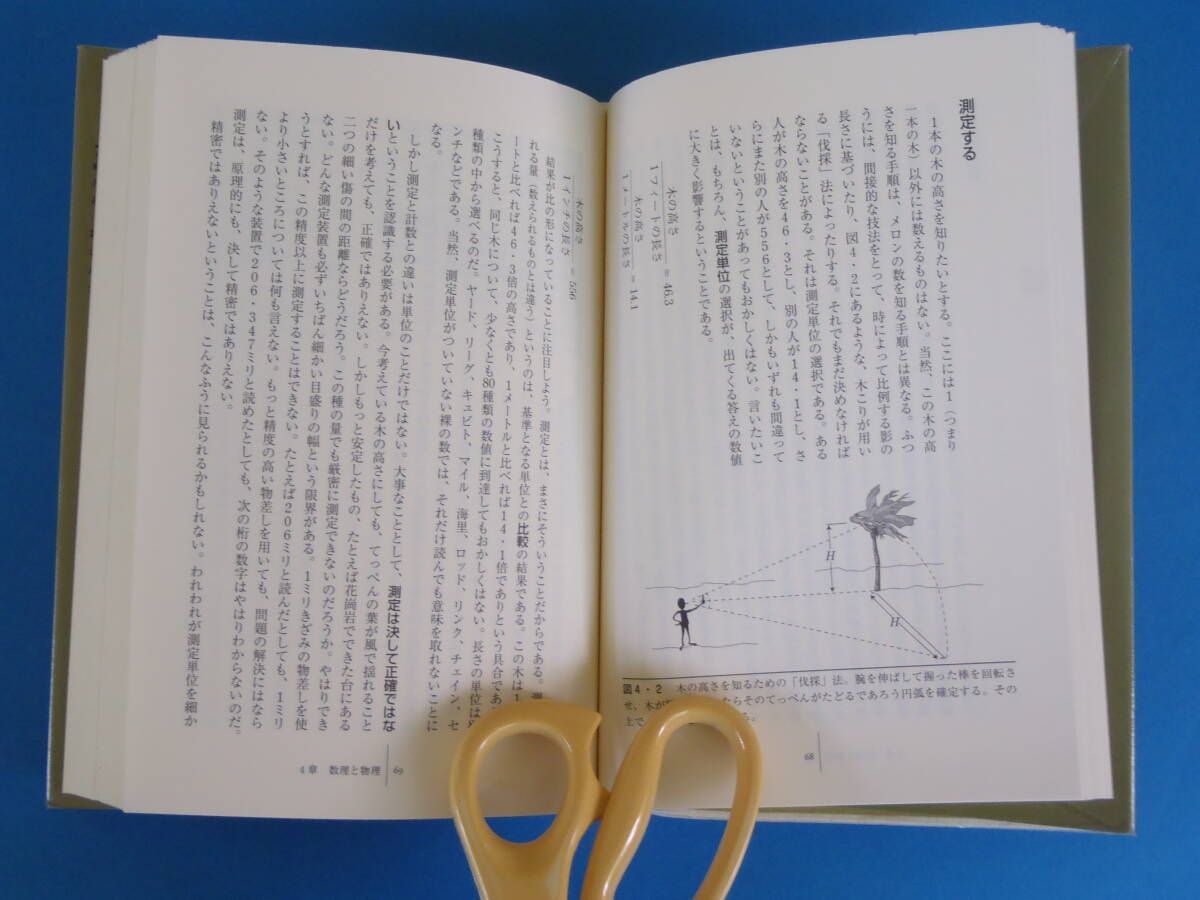 測定する
1本の木の高さを知りたいとする。ここには1（つまり
一本の木）以外には数えるものはない。当然、この木の高
さを知る手順は、メロンの数を知る手順とは異なる。ふつ
うには、間接的な技法をとって、時によって比例する影の
長さに基づいたり、図4・2にあるような、木こりが用い
る「伐採」法によったりする。それでもまだ決めなければ
ならないことがある。それは測定単位の選択である。ある
人が木の高さを46・3とし、別の人が14・1とし、さ
らにまた別の人が556として、しかもいずれも間違って
いないということがあってもおかしくはない。言いたいこ
とは、もちろん、測定単位の選択が、出てくる答えの数値
に大きく影響するということである。
木の高さ
1フィートの長さ
= 46.3
木の高さ
1メートルの長さ
= 14.1
H
H
図4・2 木の高さを知るための「伐採」法。腕を伸ばして握った棒を回転さ
せ、木が らそのてっぺんがたどるであろう円弧を確定する。その
上で る。
68
木の高さ
1インチの長さ
= 556
結果が比の形になっていることに注目しよう。測定とは、まさにそういうことだからである。
れる量（数えられるものとは違う）というのは、基準となる単位との比較の結果である。この木は1
ートと比べれば46・3倍の高さであり、1メートルと比べれば14・1倍でありという具合であ
こうすると、同じ木について、少なくとも80種類の数値に到達してもおかしくはない。長さの単位は
種類の中から選べるのだ。ヤード、リーグ、キュビト、マイル、海里、ロッド、リンク、チェイン、セ
ンチなどである。当然、測定単位がついていない裸の数では、それだけ読んでも意味を取れないことに
なる。
しかし測定と計数との違いは単位のことだけではない。大事なこととして、測定は決して正確ではな
いということを認識する必要がある。今考えている木の高さにしても、てっぺんの葉が風で揺れること
だけを考えても、正確ではありえない。しかしもっと安定したもの、たとえば花崗岩でできた台にある
二つの細い傷の間の距離ならどうだろう。この種の量でも厳密に測定できないのだろうか。やはりでき
ない。どんな測定装置も必ずいちばん細かい目盛りの幅という限界がある。1ミリきざみの物差しを使
うとすれば、この精度以上に測定することはできない。たとえば206ミリと読んだとしても、1ミリ
より小さいところについては何も言えない。もっと精度の高い物差しを用いても、問題の解決にはなら
ない。そのような装置で206・347ミリと読めたとしても、次の桁の数字はやはりわからないのだ。
測定は、原理的にも、決して精密ではありえない。
精密ではありえないということは、こんなふうに見られるかもしれない。われわれが測定単位を細か
4章 数理と物理
69